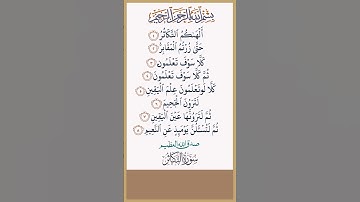 بسم الله الرحمن الرحيم
أَلْهَىٰكُمُ ٱلتَّكَاثُرُ ١
حَتَّىٰ زُرْتُمُ ٱلْمَقَابِرَ ٢
كَلَّا سَوْفَ تَعْلَمُونَ ٣
ثُمَّ كَلَّا سَوْفَ تَعْلَمُونَ ٤
كَلَّا لَوْ تَعْلَمُونَ عِلْمَ ٱلْيَقِينِ ٥
لَتَرَوُنَّ ٱلْجَحِيمَ ٦
ثُمَّ لَتَرَوُنَّهَا عَيْنَ ٱلْيَقِينِ ٧
ثُمَّ لَتُسْـَٔلُنَّ يَوْمَئِذٍ عَنِ ٱلنَّعِيمِ ٨
صدق الله العظيم
سورة التكاثر